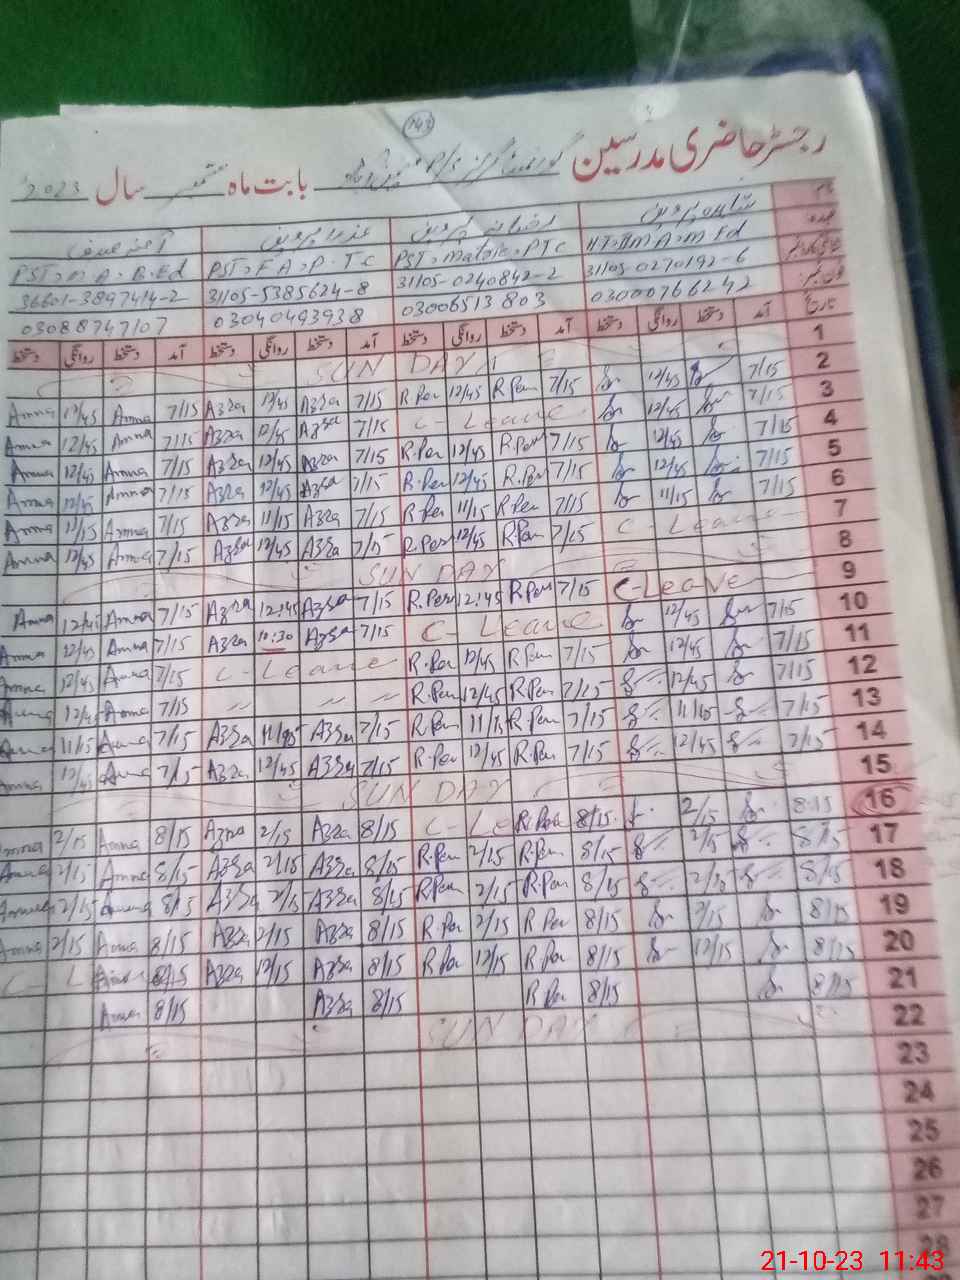 143
رجسٹر حاضری مدرسین گورنمنٹ گرلز P/S بابت ماہ سال 2023
نام شاہینہ پروین رضیانہ پروین عذرا پروین آمنہ حنیف
عہدہ HT = M A = M Ed PST = Matric = PTC PST = F A = P . T C PST = M . A = B . Ed
31105-0270192-6 31105-0240842-2 31105-5385624-8 36601-3897414-2
03000766242 03006513803 03040493938 03088747107
تاریخ آمد دستخط روانگی دستخط آمد دستخط روانگی دستخط آمد دستخط روانگی دستخط آمد دستخط روانگی دستخط
1 SUN DAY
2 7/15 12/45 R.Per 7/15 R.Per 12/45 7/15 Azra 12/45 Azra 7/15 Amna 12/45 Amna
3 7/15 12/45 C - Leave 7/15 Azra 12/45 Azra 7/15 Amna 12/45 Amna
4 7/15 12/45 7/15 R.Per 12/45 R.Per 7/15 Azra 12/45 Azra 7/15 Amna 12/45 Amna
5 7/15 12/45 7/15 R.Per 12/45 R.Per 7/15 Azra 12/45 Azra 7/15 Amna 12/45 Amna
6 7/15 11/15 7/15 R.Per 11/15 R.Per 7/15 Azra 11/15 Azra 7/15 Amna 11/15 Amna
7 C - Leave 7/15 R.Per 12/45 R.Per 7/15 Azra 12/45 Azra 7/15 Amna 12/45 Amna
8 SUN DAY
9 C-Leave 7/15 R.Per 12:45 R.Per 7/15 Azra 12:45 Azra 7/15 Amna 12/45 Amna
10 7/15 12/45 C - Leave 7/15 Azra 10:30 Azra 7/15 Amna 12/45 Amna
11 7/15 12/45 7/15 R.Per 12/45 R.Per C - Leave 7/15 Amna 12/45 Amna
12 7/15 12/45 7/15 R.Per 12/45 R.Per 〃 〃 〃 7/15 Amna 12/45 Amna
13 7/15 11/15 7/15 R.Per 11/15 R.Per 7/15 Azra 11/15 Azra 7/15 Amna 11/15 Amna
14 7/15 12/45 7/15 R.Per 12/45 R.Per 7/15 Azra 12/45 Azra 7/15 Amna 12/45 Amna
15 SUN DAY
16 8:15 2/15 8/15 R.Per C - Le 8/15 Azra 2/15 Azra 8/15 Amna 2/15 Amna
17 8/15 2/15 8/15 R.Per 2/15 R.Per 8/15 Azra 2/15 Azra 8/15 Amna 2/15 Amna
18 8/15 8/15 R.Per 2/15 R.Per 8/15 Azra 2/15 Azra 8/15 Amna 2/15 Amna
19 8/15 2/15 8/15 R.Per 2/15 R.Per 8/15 Azra 2/15 Azra 8/15 Amna 2/15 Amna
20 8/15 12/15 8/15 R.Per 12/15 R.Per 8/15 Azra 12/15 Azra 8/15 C - L
21 8/15 8/15 R.Per 8/15 Azra 8/15 Amna
22 SUN DAY
23
24
25
26
27
28
21-10-23 11:43